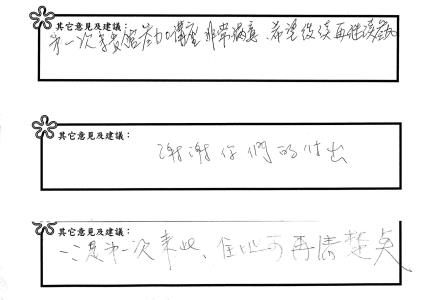 其它意見及建議：
第一次來貴館參加講座非常滿意、希望後續再繼續參加
其它意見及建議：
謝謝你們的付出
其它意見及建議：
第一次來此、住址可再清楚點